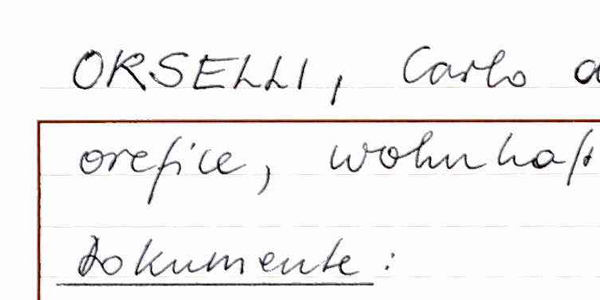 ORSELLI, Carlo
orefice, wohnhaft
Dokumente: